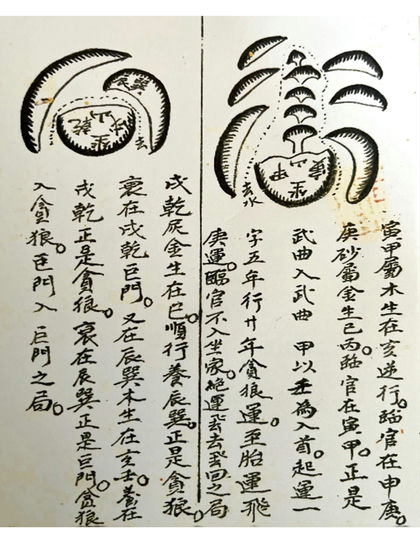 寅甲屬木生在亥逆行。臨官在申庚。
庚砂屬金生巳丙臨官在寅甲。正是
武曲入武曲 甲以壬為入首。起運一
字五年行廿年貪狼運。至胎運飛
庚運。臨官不入坐家。絶運飛去飛回之局
戌乾辰金生在巳。順行養辰巽。正是貪狼。
衰在戌乾巨門。又在辰巽木生在亥壬養在
戌乾正是貪狼。衰在辰巽正是巨門。貪狼
入貪狼。巨門入巨門之局。
庚山甲
坐
去水
巽辰
戌山乾
坐
去